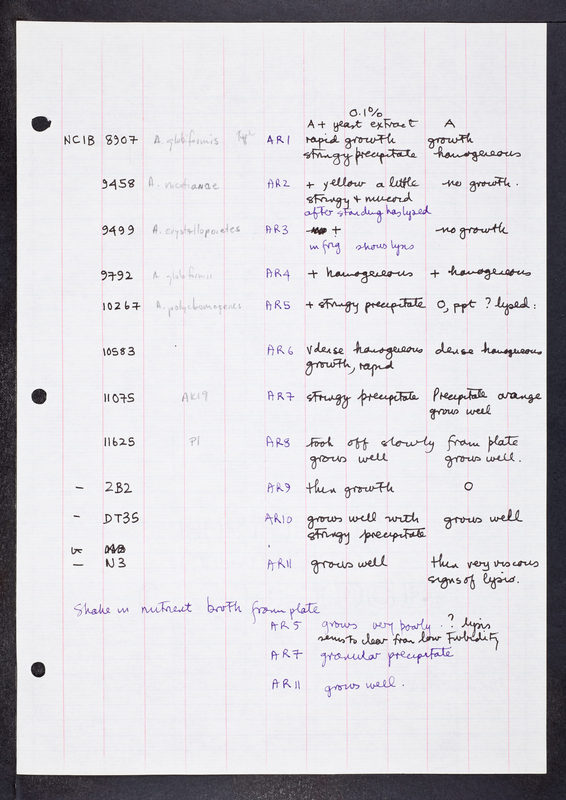 0.1%
A + yeast extract A
NCIB 8907 A. globiformis AR1 rapid growth growth
stringy precipitate homogeneous
9458 A. nicotianae AR2 + yellow a little no growth.
stringy + mucoid
after standing has lysed
9499 A. crystallopoietes AR3 + no growth
in frig shows lysis
9792 A. globiformis AR4 + homogeneous + homogeneous
10267 A. polychromogenes AR5 + stringy precipitate 0, ppt ? lysed:
10583 AR6 v dense homogeneous dense homogeneous
growth, rapid
11075 AK19 AR7 stringy precipitate Precipitate orange
grows well
11625 P1 AR8 took off slowly from plate
grows well grows well.
- ZB2 AR9 then growth 0
- DT35 AR10 grows well with grows well
stringy precipitate
- N3 AR11 grows well then very viscous
signs of lysis.
Shake in nutrient broth from plate
AR5 grows very poorly. ? lysis
seems to clear from low turbidity
AR7 granular precipitate
AR11 grows well.